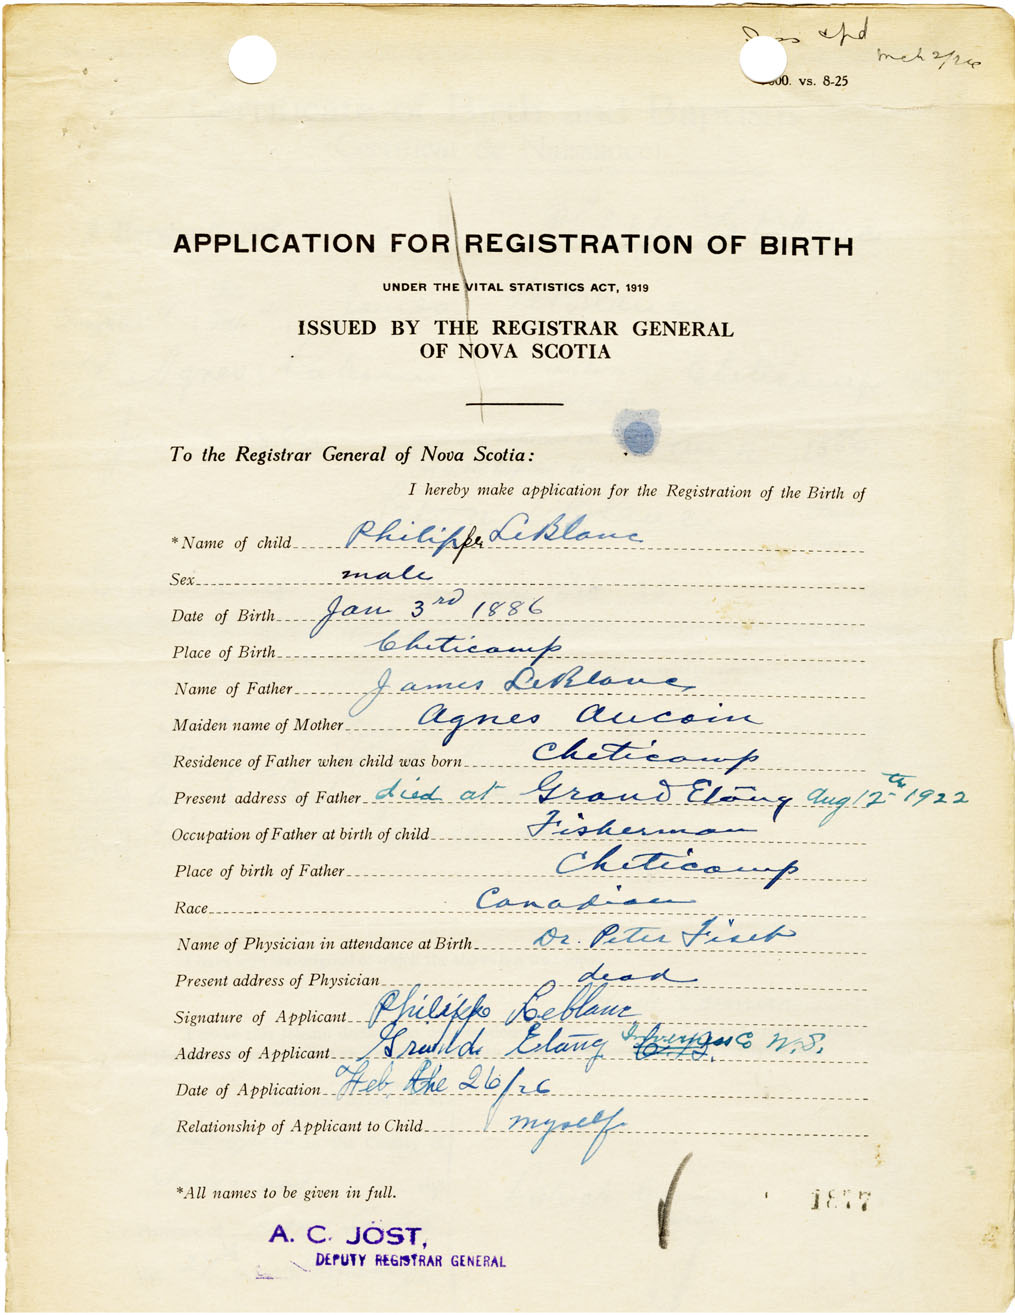 & pd
Mch 2/26
000. vs. 8-25
APPLICATION FOR REGISTRATION OF BIRTH
UNDER THE VITAL STATISTICS ACT, 1919
ISSUED BY THE REGISTRAR GENERAL
OF NOVA SCOTIA
To the Registrar General of Nova Scotia:
I hereby make application for the Registration of the Birth of
*Name of child Philippe LeBlanc
Sex male
Date of Birth Jan 3rd 1886
Place of Birth Cheticamp
Name of Father James LeBlanc
Maiden name of Mother Agnes Aucoin
Residence of Father when child was born Cheticamp
Present address of Father died at Grand Etang Aug 12th 1922
Occupation of Father at birth of child Fisherman
Place of birth of Father Cheticamp
Race Canadian
Name of Physician in attendance at Birth Dr. Peter Fiset
Present address of Physician dead
Signature of Applicant Philipp Leblanc
Address of Applicant Grand Etang Inverness Co N.S.
Date of Application Feb the 26/26
Relationship of Applicant to Child myself
*All names to be given in full.
1877
A. C. JOST,
DEPUTY REGISTRAR GENERAL